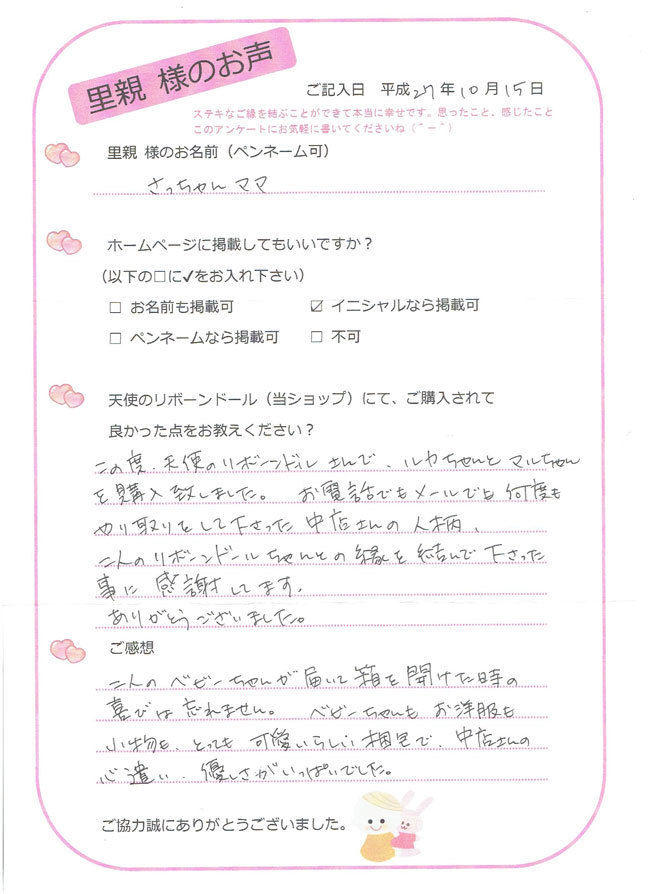 里親 様のお声
ご記入日 平成27年10月15日
ステキなご縁を結ぶことができて本当に幸せです。思ったこと、感じたこと
このアンケートにお気軽に書いてくださいね(˘ー˘)
里親 様のお名前(ペンネーム可)
さっちゃんママ
ホームページに掲載してもいいですか?
(以下の□に✓をお入れ下さい)
□ お名前も掲載可 ☑ イニシャルなら掲載可
□ ペンネームなら掲載可 □ 不可
天使のリボーンドール(当ショップ)にて、ご購入されて
良かった点をお教えください?
この度、天使のリボーンドールさんで、ルカちゃんとマルちゃん
を購入致しました。 お電話でもメールでも何度も
やり取りをして下さった中店さんの人柄、
二人のリボーンドールちゃんとの縁を結んで下さった
事に感謝してます。
ありがとうございました。
ご感想
二人のベビーちゃんが届いて箱を開けた時の
喜びは忘れません。 ベビーちゃんもお洋服も
小物も、とっても可愛いらしい梱包で、中店さんの
心遣い、優しさがいっぱいでした。
ご協力誠にありがとうございました。